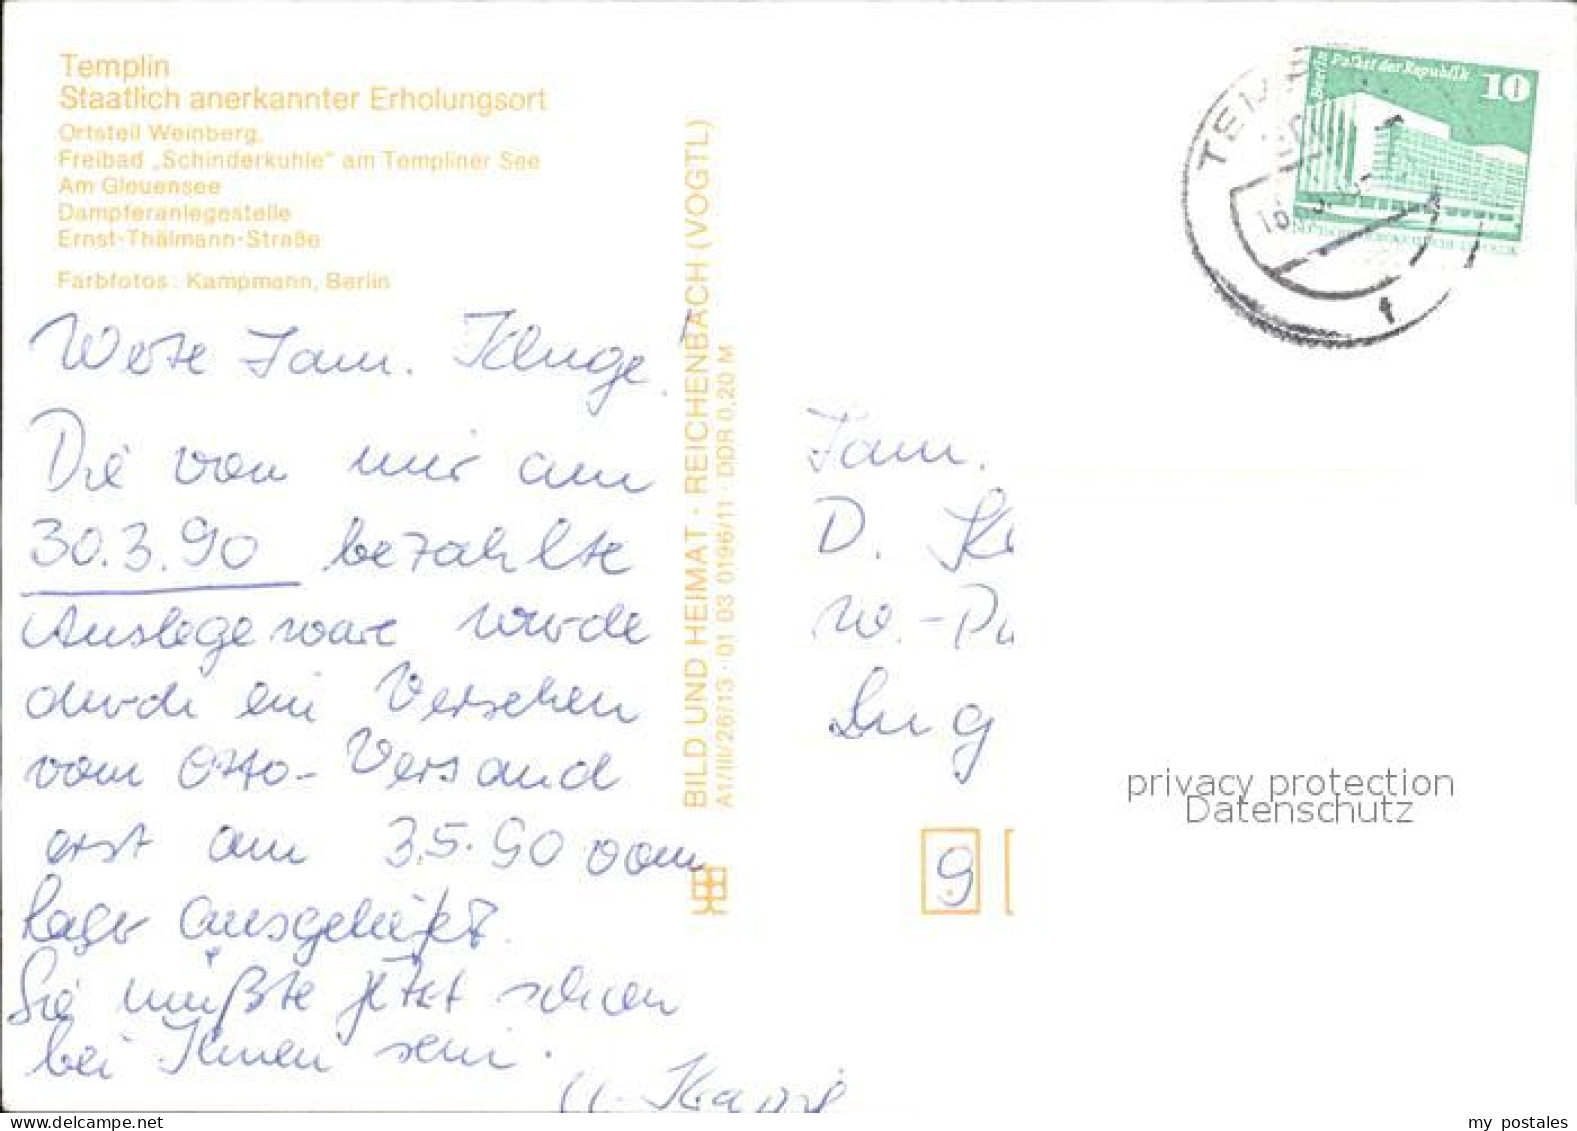 Templin
Staatlich anerkannter Erholungsort
Ortsteil Weinberg,
Freibad „Schinderkuhle" am Templiner See
Am Gleuensee
Dampferanlegestelle
Ernst-Thälmann-Straße
Farbfotos: Kampmann, Berlin
Werte Fam. Kluge!
Die von mir am
30.3.90 bezahlte
Auslegeware wurde
durch ein Versehen
vom Otto-Versand
erst am 3.5.90 vom
Lager ausgeliefert.
Sie müßte jetzt schon
bei Ihnen sein.
BILD UND HEIMAT · REICHENBACH (VOGTL)
A1/III/26/13 · 01 03 0196/11 · DDR 0,20 M
Berlin Palast der Republik 10
Fam.
D. Kl
W.-Pu
9
privacy protection
Datenschutz
my postales